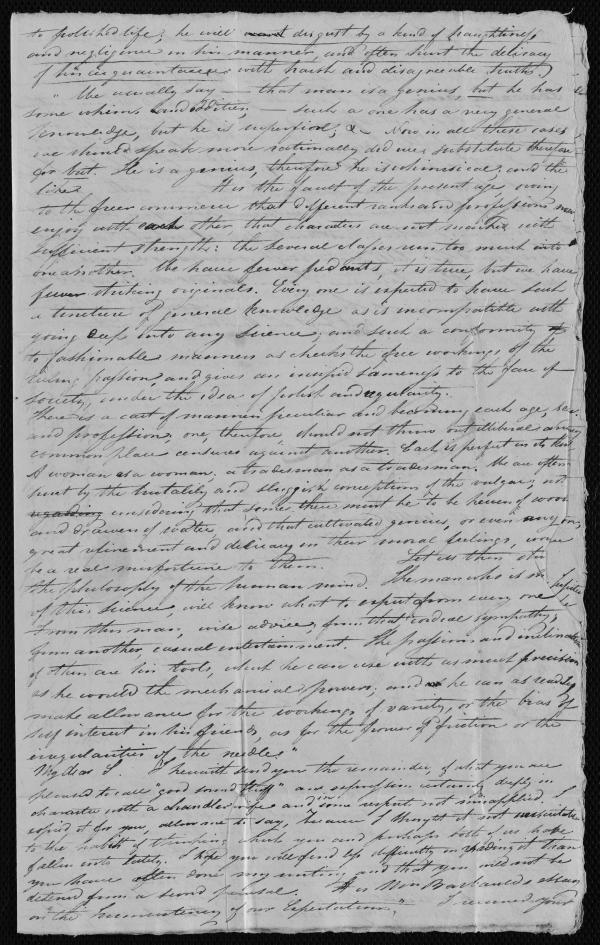 to polished life; he will disgust by a kind of haughtiness
and negligence in his manner, and often hurt the delicacy
of his acquaintances with harsh and disagreeable truths.
"We usually say — that man is a genius, but he has
some whims and oddities, — such a one has a very general
knowledge, but he is superficial, &c Now in all these cases
we should speak more rationally did we substitute therefore
for but. He is a genius, therefore he is whimsical; and the
like. It is the fault of the present age, owing
to the freer commerce that different ranks and professions now
enjoy with each other, that characters are not marked with
sufficient strength: the several classes run too much into
one another. We have fewer pedants, it is true, but we have
fewer striking originals. Every one is expected to have such
a tincture of general knowledge as is incompatible with
going deep into any science; and such a conformity
to fashionable manners as checks the free workings of the
ruling passion, and gives an insipid sameness to the face of
society, under the idea of polish and regularity.
There is a cast of manners peculiar and becoming each age, sex,
and profession; one, therefore should not throw out illiberal and
common place censures against another. Each is perfect in its kind
A woman as a woman: a tradesman as a tradesman. We are often
hurt by the brutality and sluggish conceptions of the vulgar; not
considering that some there must be to be hewers of wood
and drawers of water, and that cultivated genius, or even any
great refinement and delicacy in their moral feelings, would
be a real misfortune to them. Let us then study
the philosophy of the human mind. The man who is master
of this science, will know what to expect from every one
From this man, wise advice; from that cordial sympathy;
from another casual entertainment. The passions and inclinations
of others are his tools, which he can use with as much precision
as he would the mechanical powers; and he can as readily
make allowance for the workings of vanity, or the bias of
self interest in his friends, as for the power of friction or the
irregularities of the needle"
My dear S. I herewith send you the remainder, of what you are
pleased to call "good sound stuff" an expression certainly deeply in
character with a chandler's and in some respect not misapplied. I
copied it for you, allow me to say, because I thought it not
to the habit of thinking which you and perhaps both of us have
fallen into lately. I hope you will find less difficulty in reading it than
you have often done my writing and that you will not be
deterred from a second perusal. It is Mrs Barbauld's essay
on the "Inconsistency of our Expectations" I received your